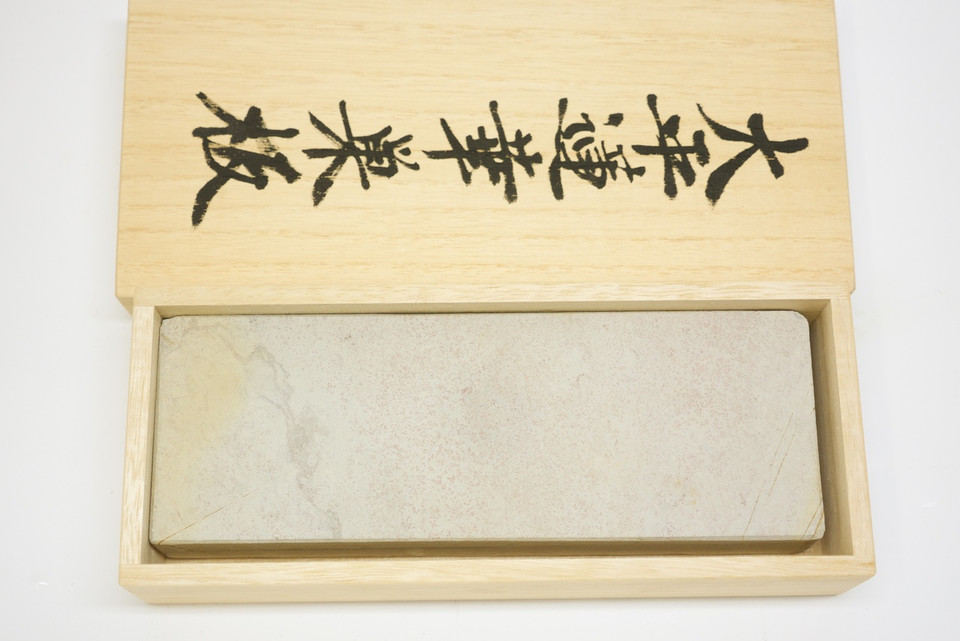 大平蓮華巣板